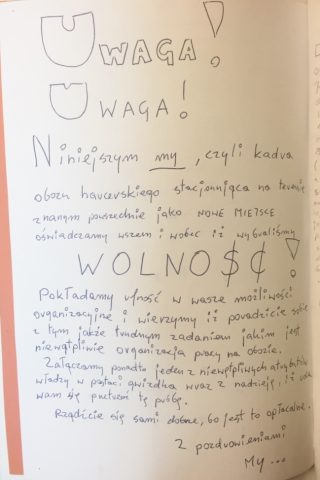 UWAGA!
UWAGA!
Niniejszym my, czyli kadra
obozu harcerskiego stacjonująca na terenie
znanym powszechnie jako NOWE MIEJSCE
oświadczamy wszem i wobec iż wybraliśmy
WOLNO$¢!
Pokładamy ufność w wasze możliwości
organizacyjne i wierzymy iż poradzicie sobie
z tym jakże trudnym zadaniem jakim jest
niewątpliwie organizacja pracy na obozie.
Załączamy ponadto jeden z niewątpliwych atrybutów
władzy w postaci gwizdka wraz z nadzieją, iż uda
wam się przetrwać tę próbę.
Rządźcie się sami dobrze, bo jest to opłacalne.
Z pozdrowieniami
My...